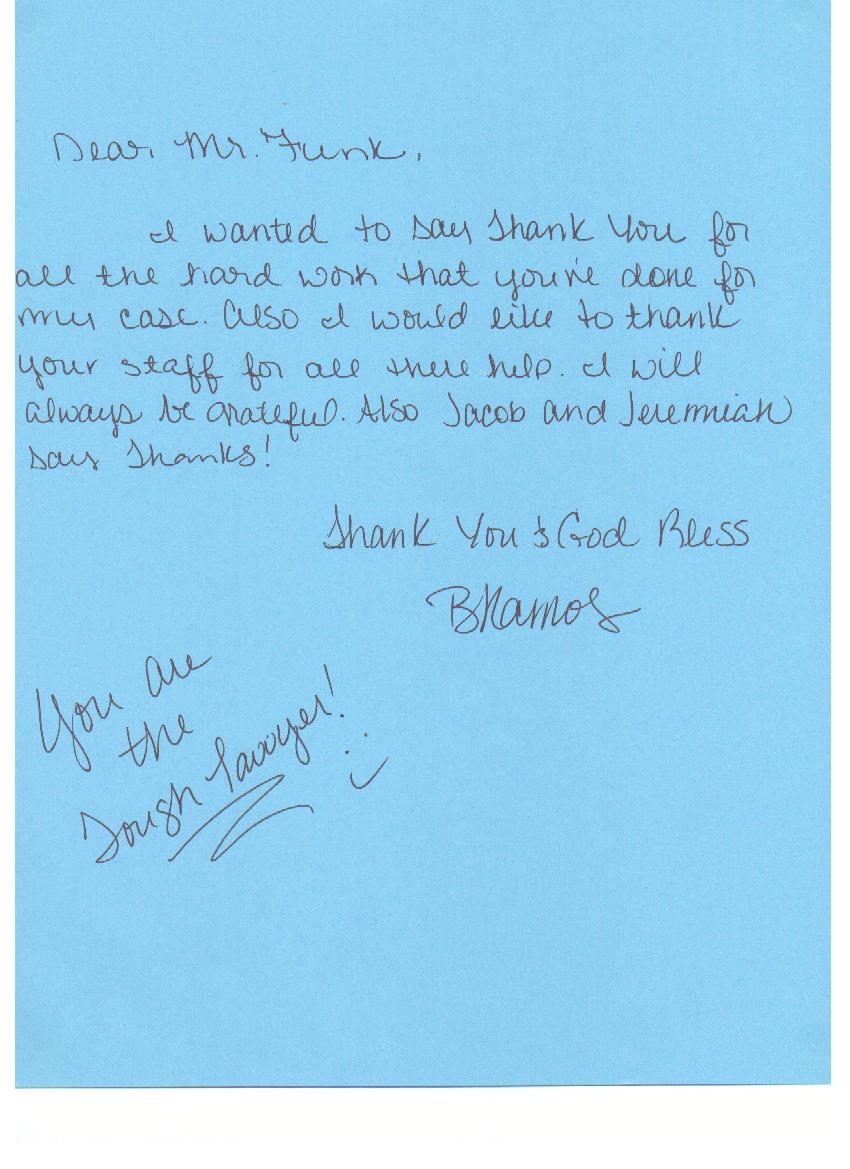 Dear Mr. Funk,
I wanted to say Thank You for
all the hard work that you've done for
my case. Also I would like to thank
your staff for all there help. I will
always be grateful. Also Jacob and Jeremiah
say Thanks!
Thank You & God Bless
BRamos
You are
the
Tough Lawyer!